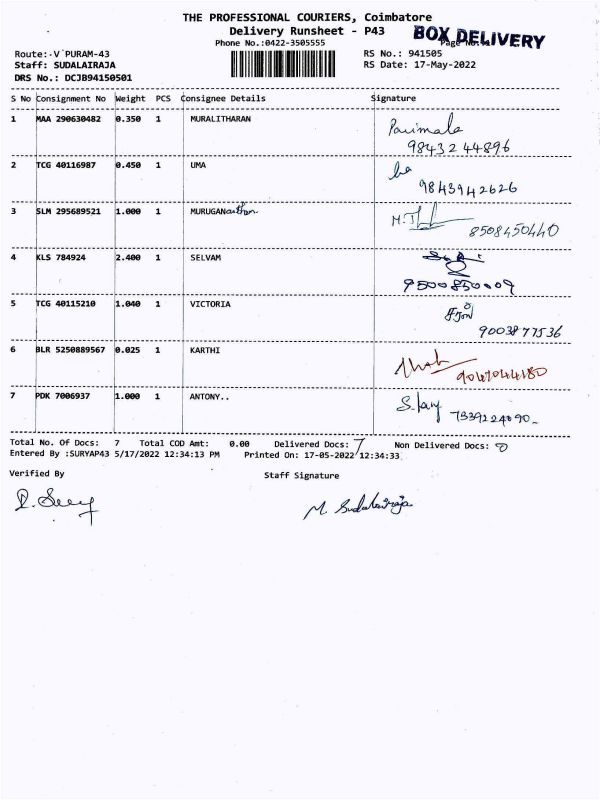 THE PROFESSIONAL COURIERS, Coimbatore
Delivery Runsheet - P43
BOX DELIVERY
Phone No.:0422-3505555
Route:-V PURAM-43
RS No.: 941505
Staff: SUDALAIRAJA
RS Date: 17-May-2022
DRS No.: DCJB94150501
S No Consignment No Weight PCS Consignee Details Signature
1 MAA 290630482 0.350 1 MURALITHARAN Parimala
98432 44896
2 TCG 40116987 0.450 1 UMA
9843942626
3 SLM 295689521 1.000 1 MURUGAN
8508450440
4 KLS 784924 2.400 1 SELVAM
9500850009
5 TCG 40115210 1.040 1 VICTORIA
9003877536
6 BLR 5250889567 0.025 1 KARTHI
7 PDK 7006937 1.000 1 ANTONY..
7339224090
Total No. Of Docs: 7 Total COD Amt: 0.00 Delivered Docs: 7 Non Delivered Docs: 0
Entered By :SURYAP43 5/17/2022 12:34:13 PM Printed On: 17-05-2022 12:34:33
Verified By Staff Signature
M. Sudalairaja